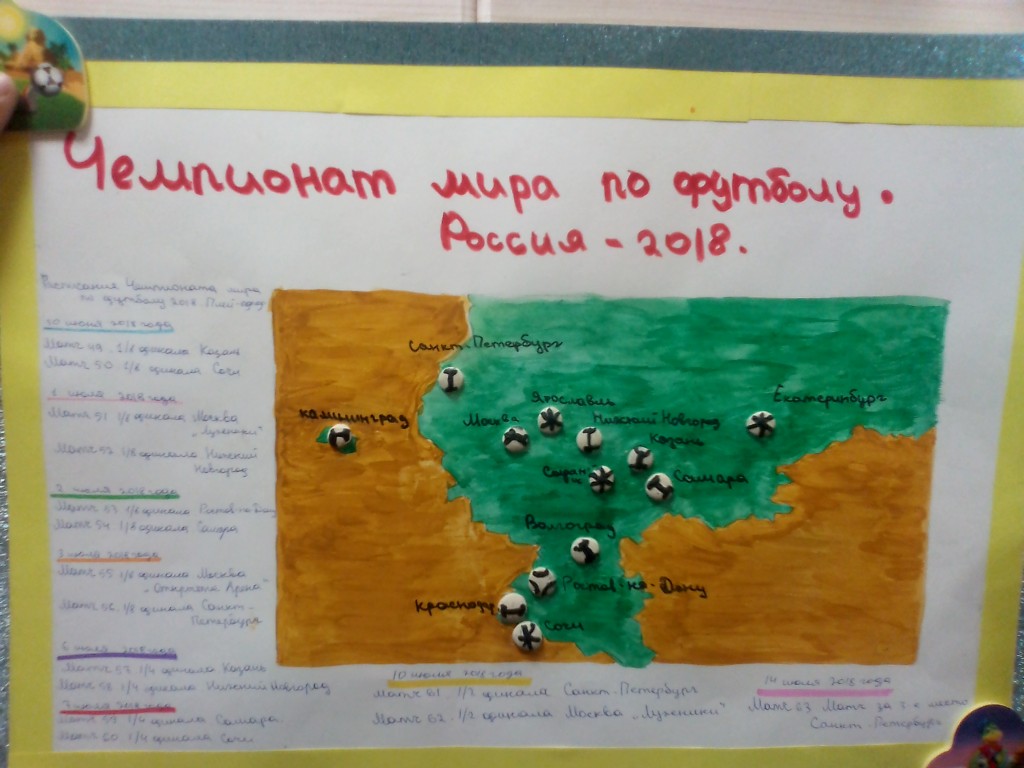 Чемпионат мира по футболу.
Россия - 2018.
Расписание Чемпионата мира
по футболу 2018 Плей-офф
2018 года
Матч 49. 1/8 финала Казань
Матч 50 1/8 финала Сочи
1 июля 2018 года
Матч 51 1/8 финала Москва
"Лужники"
Матч 52 1/8 финала Нижний
Новгород
2 июля 2018 года
Матч 53 1/8 финала Ростов-на-Дону
Матч 54 1/8 финала Самара
3 июля 2018 года
Матч 55 1/8 финала Москва
"Открытие Арена"
Матч 56 1/8 финала Санкт-
Петербург
6 июля 2018 года
Матч 57 1/4 финала Казань
Матч 58 1/4 финала Нижний Новгород
7 июля 2018 года
Матч 59 1/4 финала Самара.
Матч 60 1/4 финала Сочи
Санкт-Петербург
Калининград
Ярославль
Москва
Нижний Новгород
Казань
Екатеринбург
Саран
ск
Самара
Волгоград
Ростов-на-Дону
Краснодар
Сочи
10 июля 2018 года
Матч 61. 1/2 финала Санкт-Петербург
Матч 62. 1/2 финала Москва "Лужники"
14 июля 2018 года
Матч 63 Матч за 3-е место
Санкт-Петербург